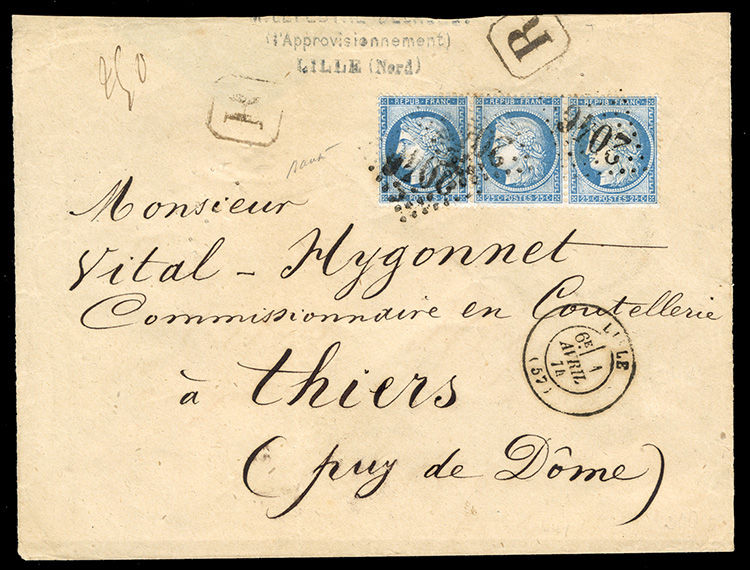 (l'Approvisionnement)
LILLE (Nord)
R
R
REPUB·FRANC
REPUB·FRANC
REPUB·FRANC
25·C·POSTES·25·C
25·C·POSTES·25·C
25·C·POSTES·25·C
2046
Monsieur
Vital - Hygonnet
Commissionnaire en Coutellerie
à Thiers
(puy de Dôme)
LILLE
6E 1
AVRIL
74
(57)